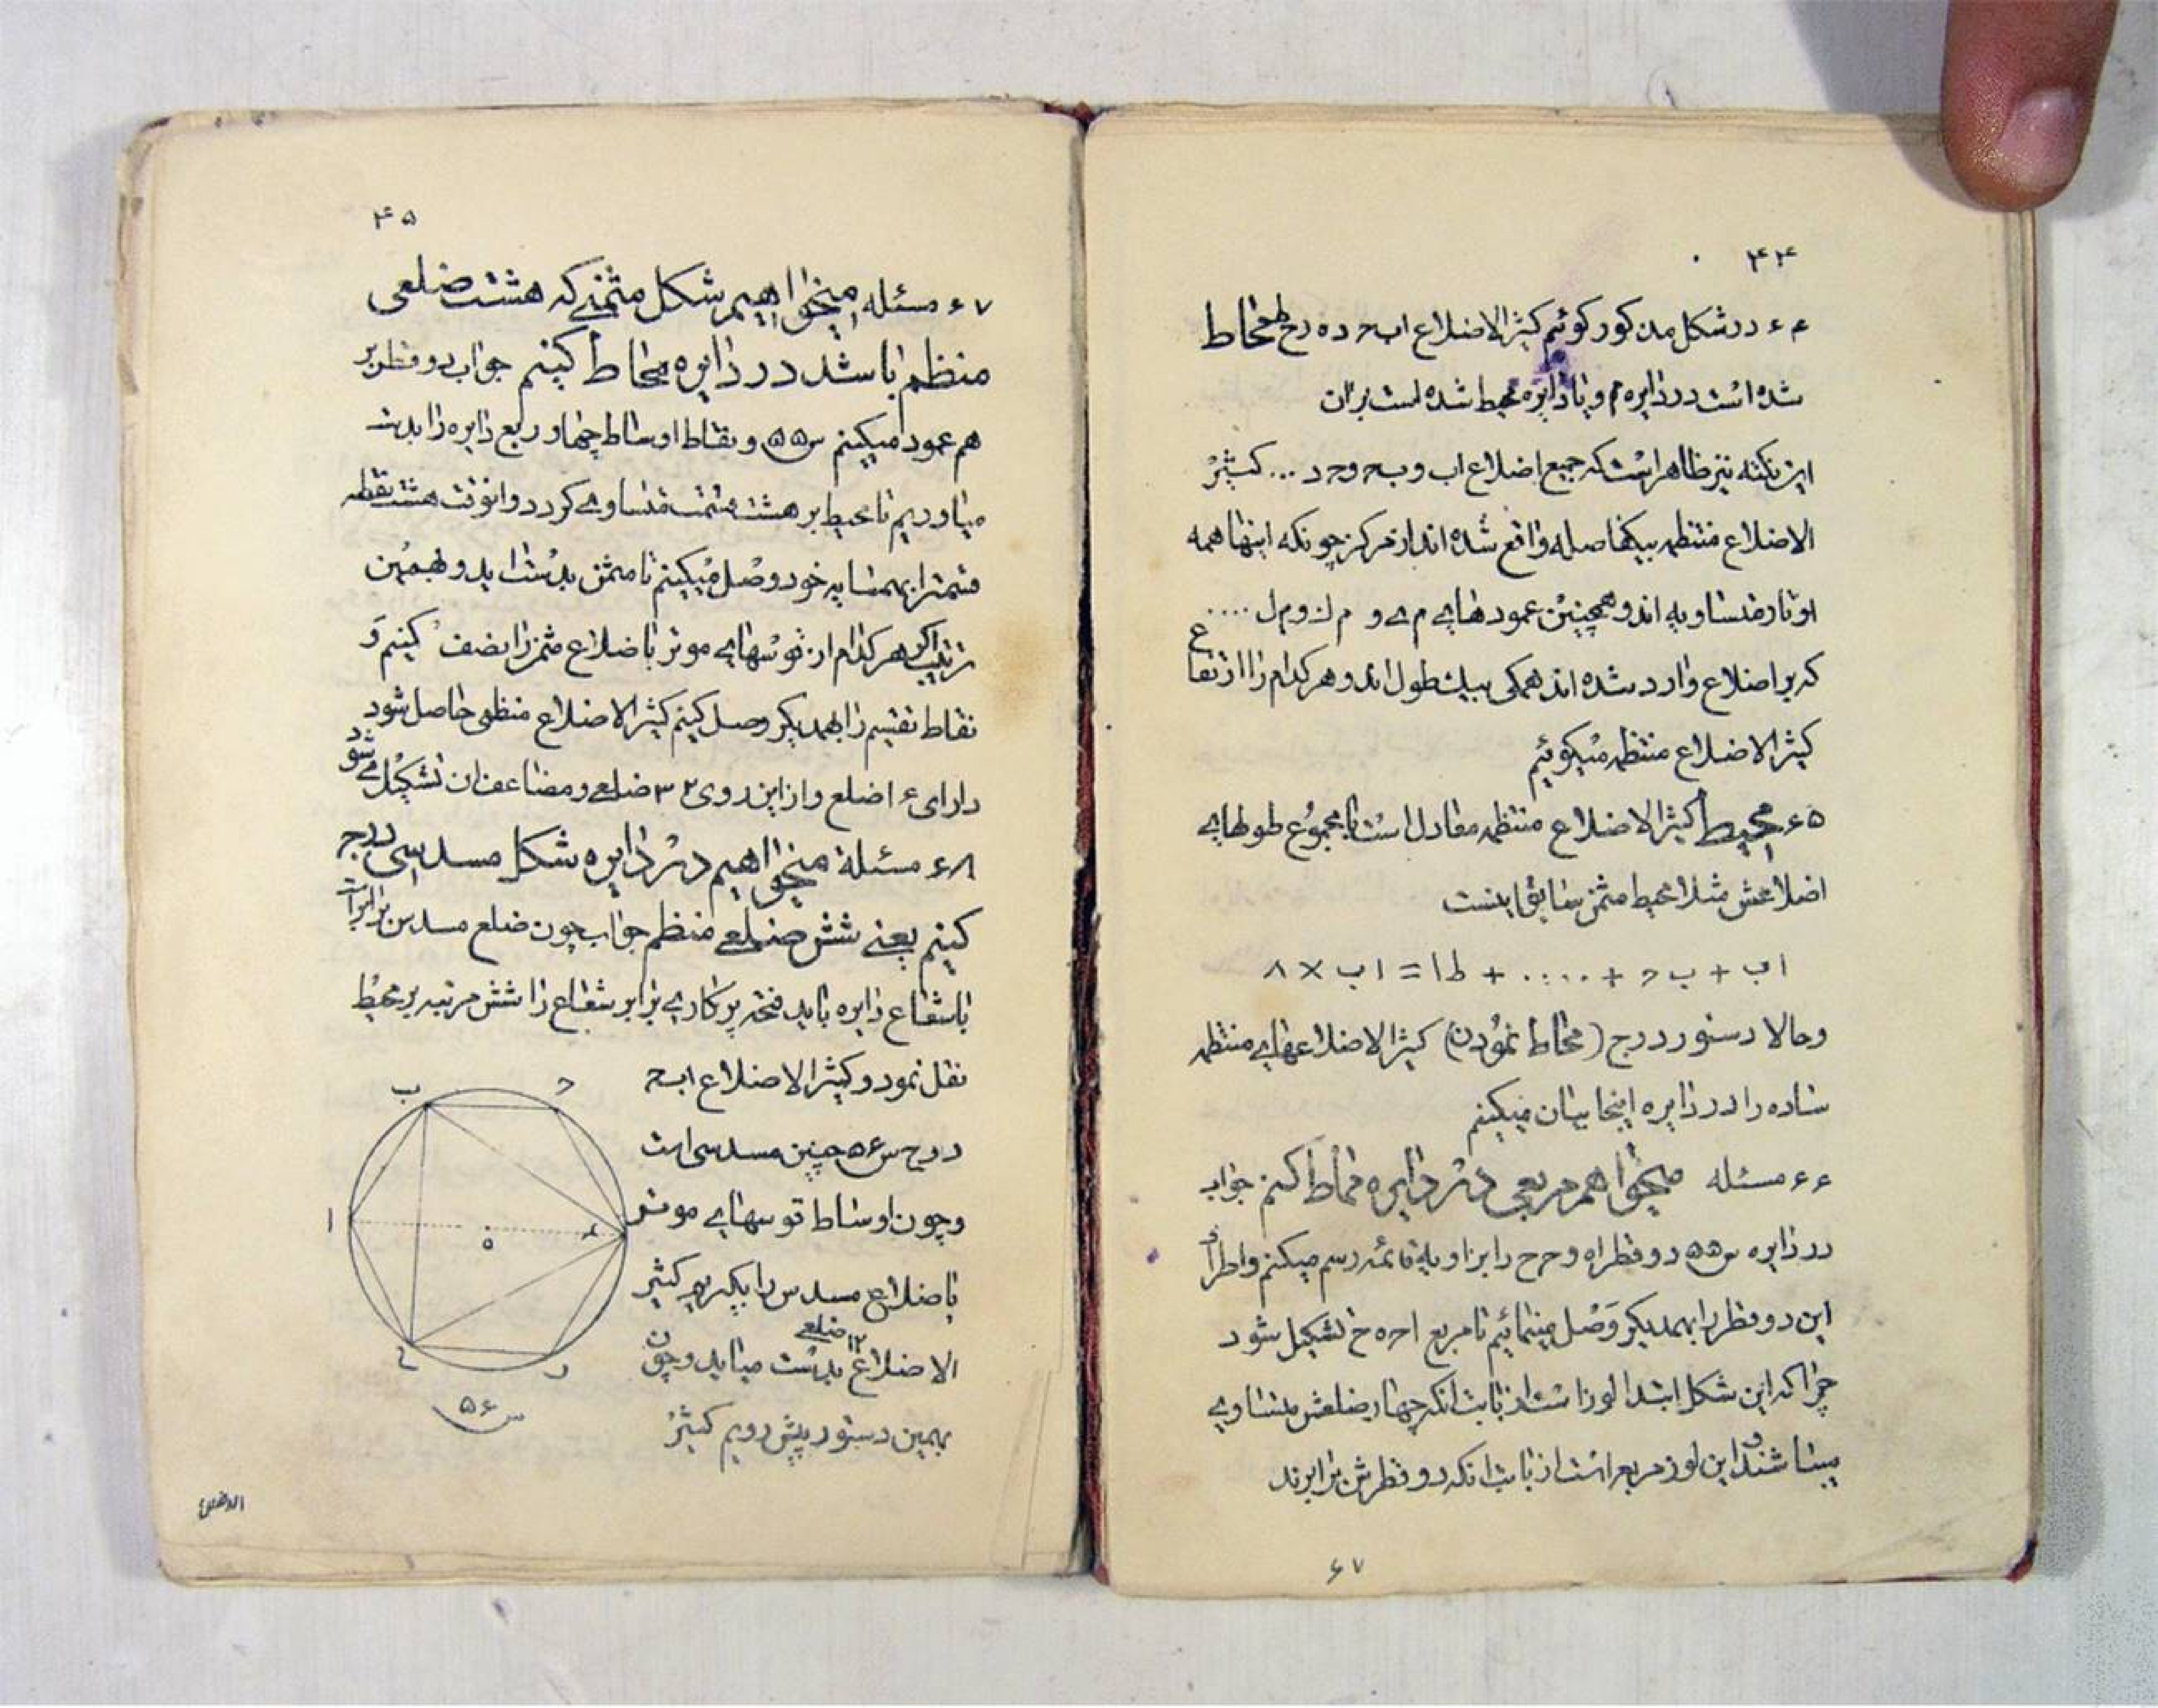 ۴۴
۶۴ در شکل مذکور کوئیم کثیر الاضلاع اب ح د ه ر ح ط محاط
شده است در دایره م و یا دایره محیط شده است بر ان
این نکته نیز ظاهر است که جمیع اضلاع اب و ب ح و ح د ... کثیر
الاضلاع منتظم بیکفاصله واقع شده اند از مرکز چونکه اینها همه
اوتار متساویه اند و همچنین عمودهایی م ی و م ک و م ل ....
که بر اضلاع وارد شده اند همکی بیک طول اند و هر کدام را ارتفاع
کثیر الاضلاع منتظم میکوئیم
۶۵ محیط کثیر الاضلاع منتظم معادل است با مجموع طولهایی
اضلاعش مثلا محیط مثمن سابق اینست
اب + ب ح + .... + ط ا = اب × ۸
و حالا دستور درج (محاط نمودن) کثیر الاضلاعهایی منتظم
ساده را در دایره اینجا بیان میکنیم
۶۶ مسئله میخواهم مربعی در دایره محاط کنم جواب
در دایره س ۵۵ دو قطر اه و ح ح را بزاویه قائمه رسم میکنم و اطراف
این دو قطر را بهمدیکر وصل مینمائیم تا مربع ا ح ه ح تشکیل شود
چرا که این شکل ابتدا لوز است از بابت انکه چهار ضلعش متساوی
میباشند و این لوز مربع است از بابت انکه دو قطرش برابرند
۶۷
۴۵
۶۷ مسئله میخواهیم شکل مثمنی که هشت ضلعی
منظم باشد در دایره محاط کنیم جواب دو قطر بر
هم عمود میکنیم س ۵۵ و نقاط اوساط چهار ربع دایره را بدست
میاوریم تا محیط بر هشت قسمت متساوی کردد و انوقت هشت نقطه
قسمت را بهمسایه خود وصل میکنیم تا مثمن بدست اید و بهمین
ترتیب اکر هر کدام از قوسهایی موتر باضلاع مثمن را نصف کنیم و
نقاط تقسیم را بهمدیکر وصل کنیم کثیر الاضلاع منظمی حاصل شود
دارای ۱۶ ضلع و از این روی ۳۲ ضلعی و مضاعف ان تشکیل می شود
۶۸ مسئله میخواهیم در دایره شکل مسدسی درج
کنیم یعنی شش ضلعی منظم جواب چون ضلع مسدس برابر است
با شعاع دایره باید فتحه پرکاری برابر شعاع را شش مرتبه بر محیط
نقل نمود و کثیر الاضلاع اب ح
د ر ح س ۵۶ چنین مسدسی است
و چون اوساط قوسهایی موتر
باضلاع مسدس را بکیریم کثیر
الاضلاع ۱۲ ضلعی بدست میاید و چون
بهمین دستور پیش رویم کثیر
ب
ح
ا
ه
د
ح
ر
س ۵۶
الاضلاع